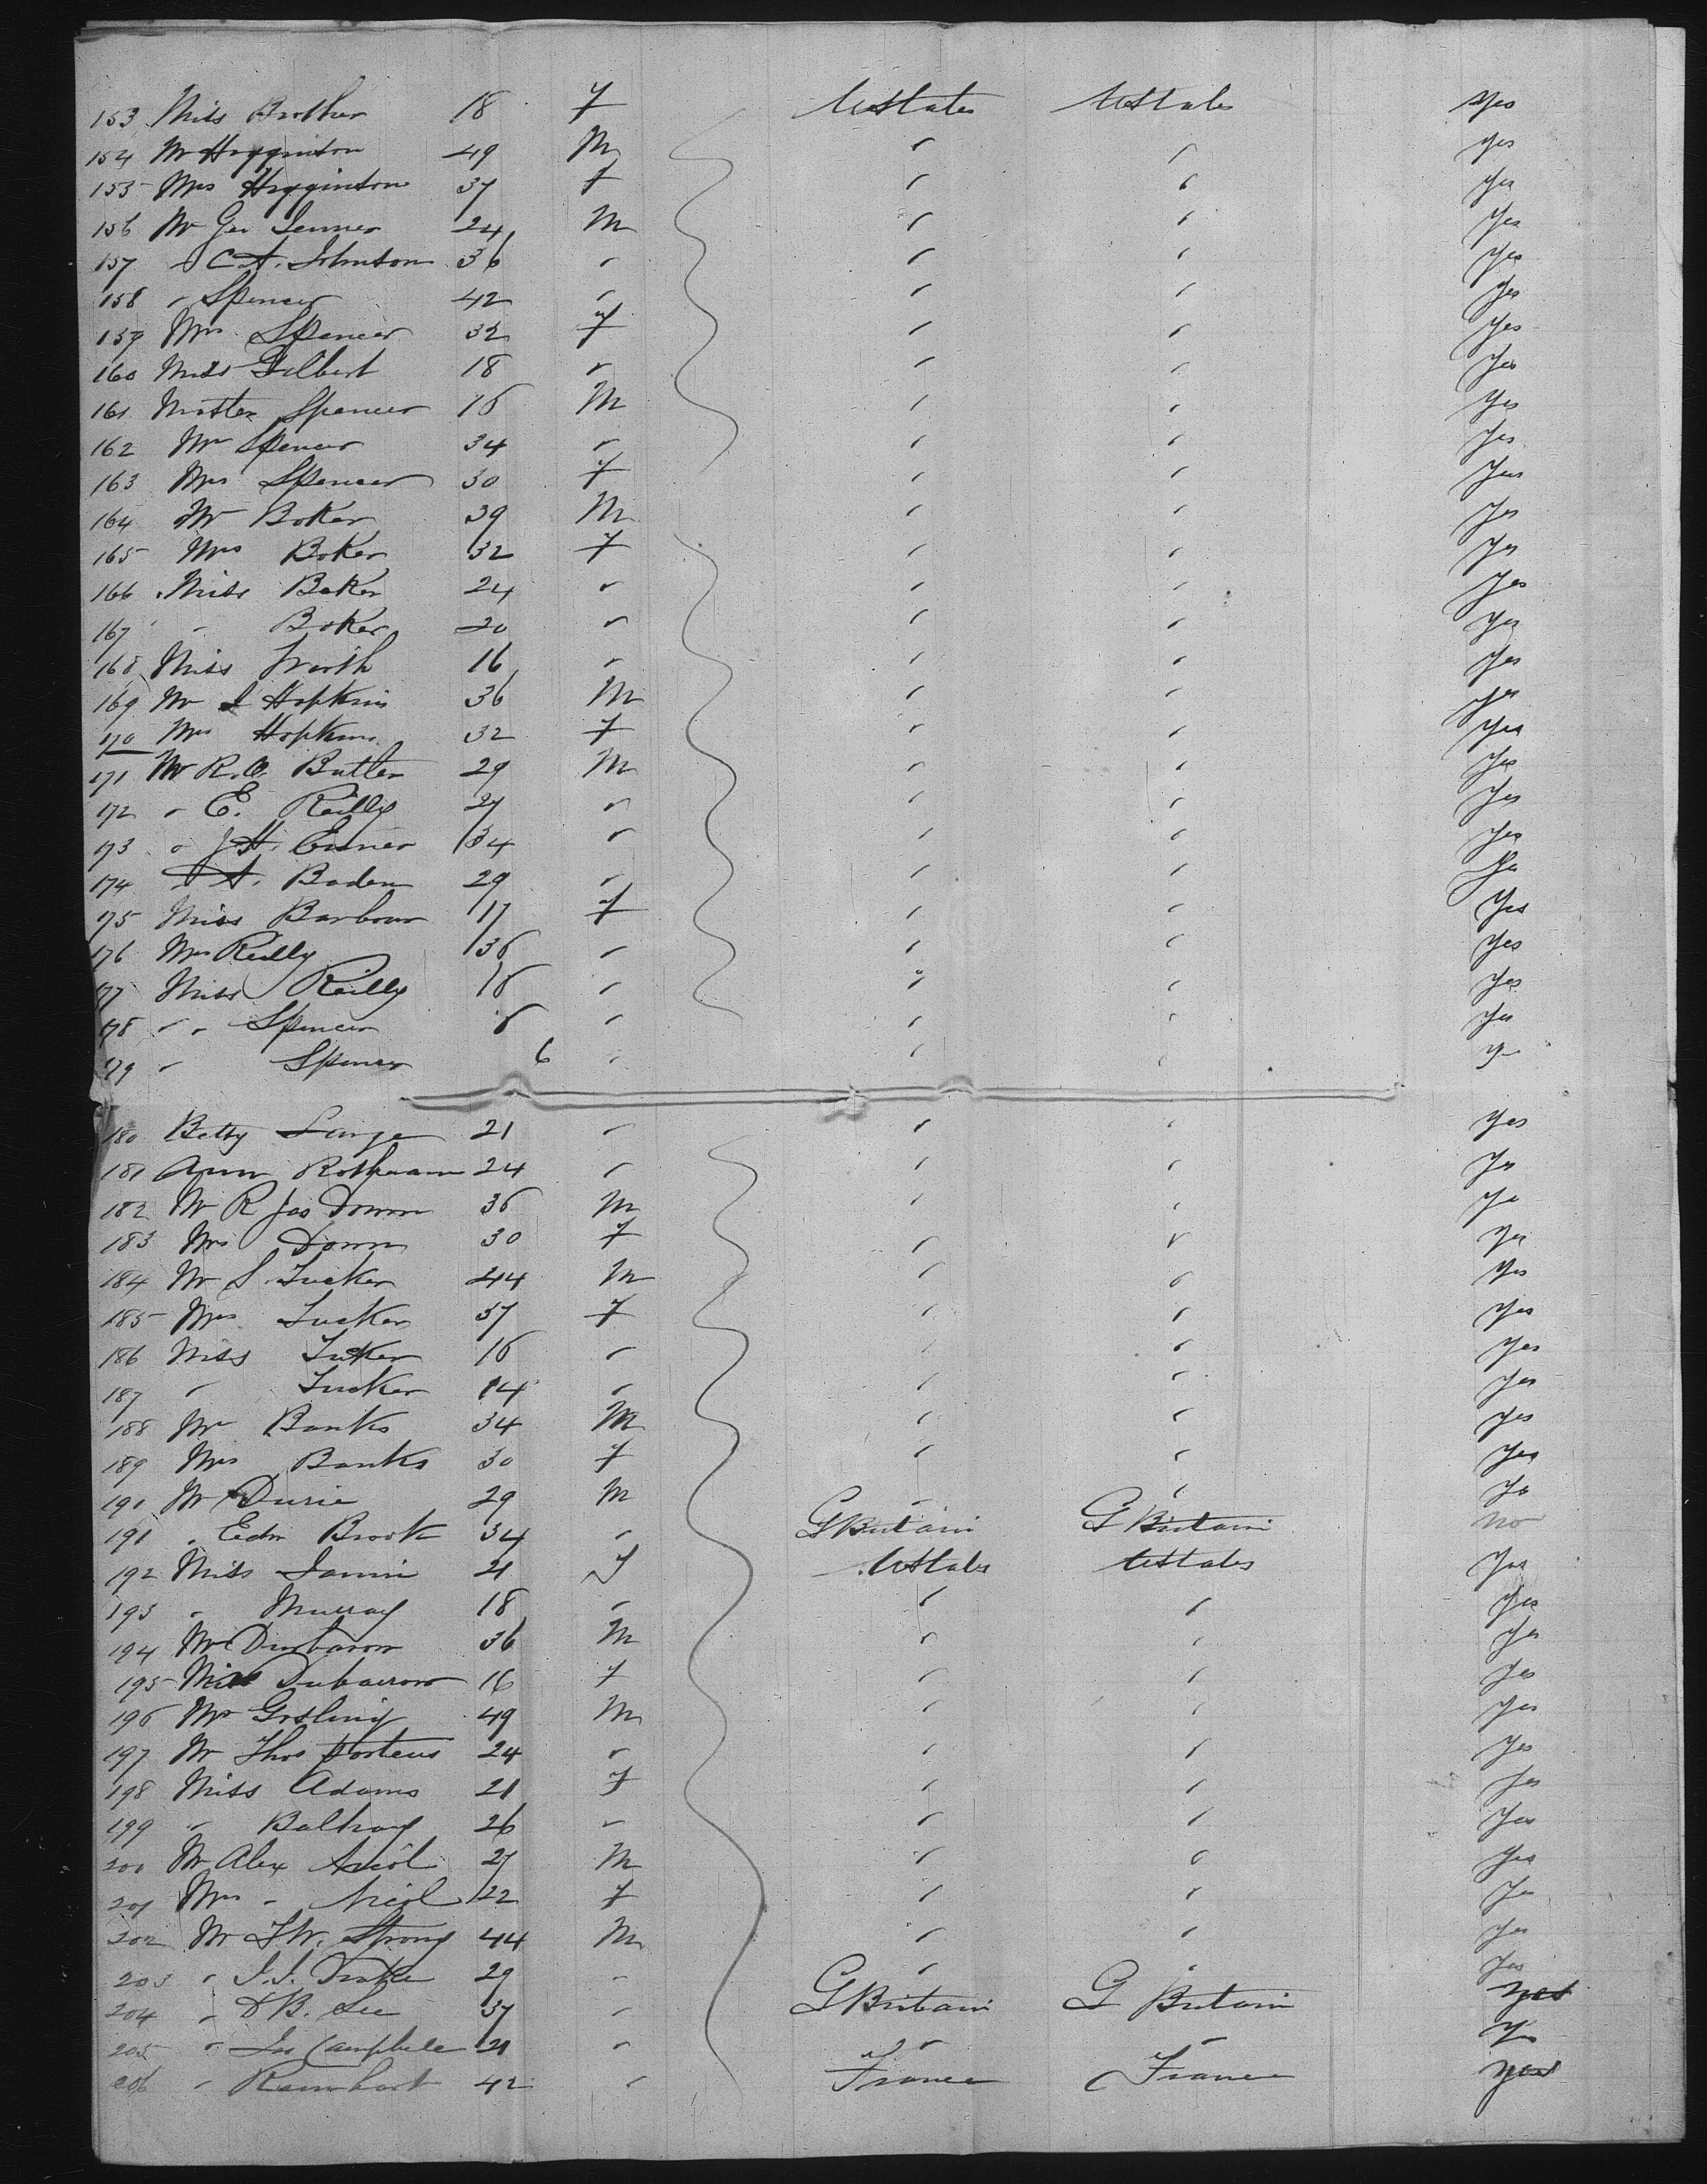 153 Miss Brother 18 F UStates UStates Yes
154 Mr Higginton 49 M " " yes
155 Mrs Higginton 37 F " " yes
156 Mr Geo Jenner 24 M " " yes
157 " C.A. Johnson 36 " " " yes
158 " Spencer 42 " " " yes
159 Mrs Spencer 32 F " " yes
160 Miss Gilbert 18 " " " yes
161 Master Spencer 16 M " " yes
162 Mr Spencer 34 " " " yes
163 Mrs Spencer 30 F " " yes
164 Mr Boker 39 M " " yes
165 Mrs Boker 32 F " " yes
166 Miss Boker 24 " " " yes
167 " Boker 20 " " " yes
168 Miss Worth 16 " " " yes
169 Mr S Hopkins 36 M " " yes
170 Mrs Hopkins 32 F " " yes
171 Mr R.O. Butler 29 M " " yes
172 " E. Reilly 27 " " " yes
173 " J.H. 34 " " " yes
174 " A. Boden 29 " " " yes
175 Miss Barbour 17 F " " yes
176 Mrs Reilly 36 " " " yes
177 Miss Reilly 18 " " " yes
178 " " Spencer 8 " " " yes
179 " Spencer 6 " " " ys
180 Betty Lange 21 " " " yes
181 Ann 24 " " " yes
182 Mr R Jas Down 36 M " " ye
183 Mrs Down 30 F " " yes
184 Mr S. Tucker 44 M " " yes
185 Mrs Tucker 37 F " " yes
186 Miss Tucker 16 " " " yes
187 " Tucker 14 " " " yes
188 Mr Banks 34 M " " yes
189 Mrs Banks 30 F " " yes
190 Mr Durie 29 M " " ye
191 " Edw Brook 34 " G Britain G Britain no
192 Miss Jamin 21 F UStates UStates yes
193 " Murray 18 " " " yes
194 Mr Dubarrow 36 M " " yes
195 Miss Dubarrow 16 F " " yes
196 Mr Gosling 49 M " " yes
197 Mr Thos Porteus 24 " " " yes
198 Miss Adams 21 F " " yes
199 " 26 " " " yes
200 Mr Alex Nicol 27 M " " yes
201 Mrs " Nicol 22 F " " ye
202 Mr T.W. Strong 44 M " " yes
203 " J.J. Drake 29 " " " yes
204 " D.B. Lee 37 " G Britain G Britain yes
205 " Jas Campbell 21 " " " ys
206 " Reinhart 42 " France France yes